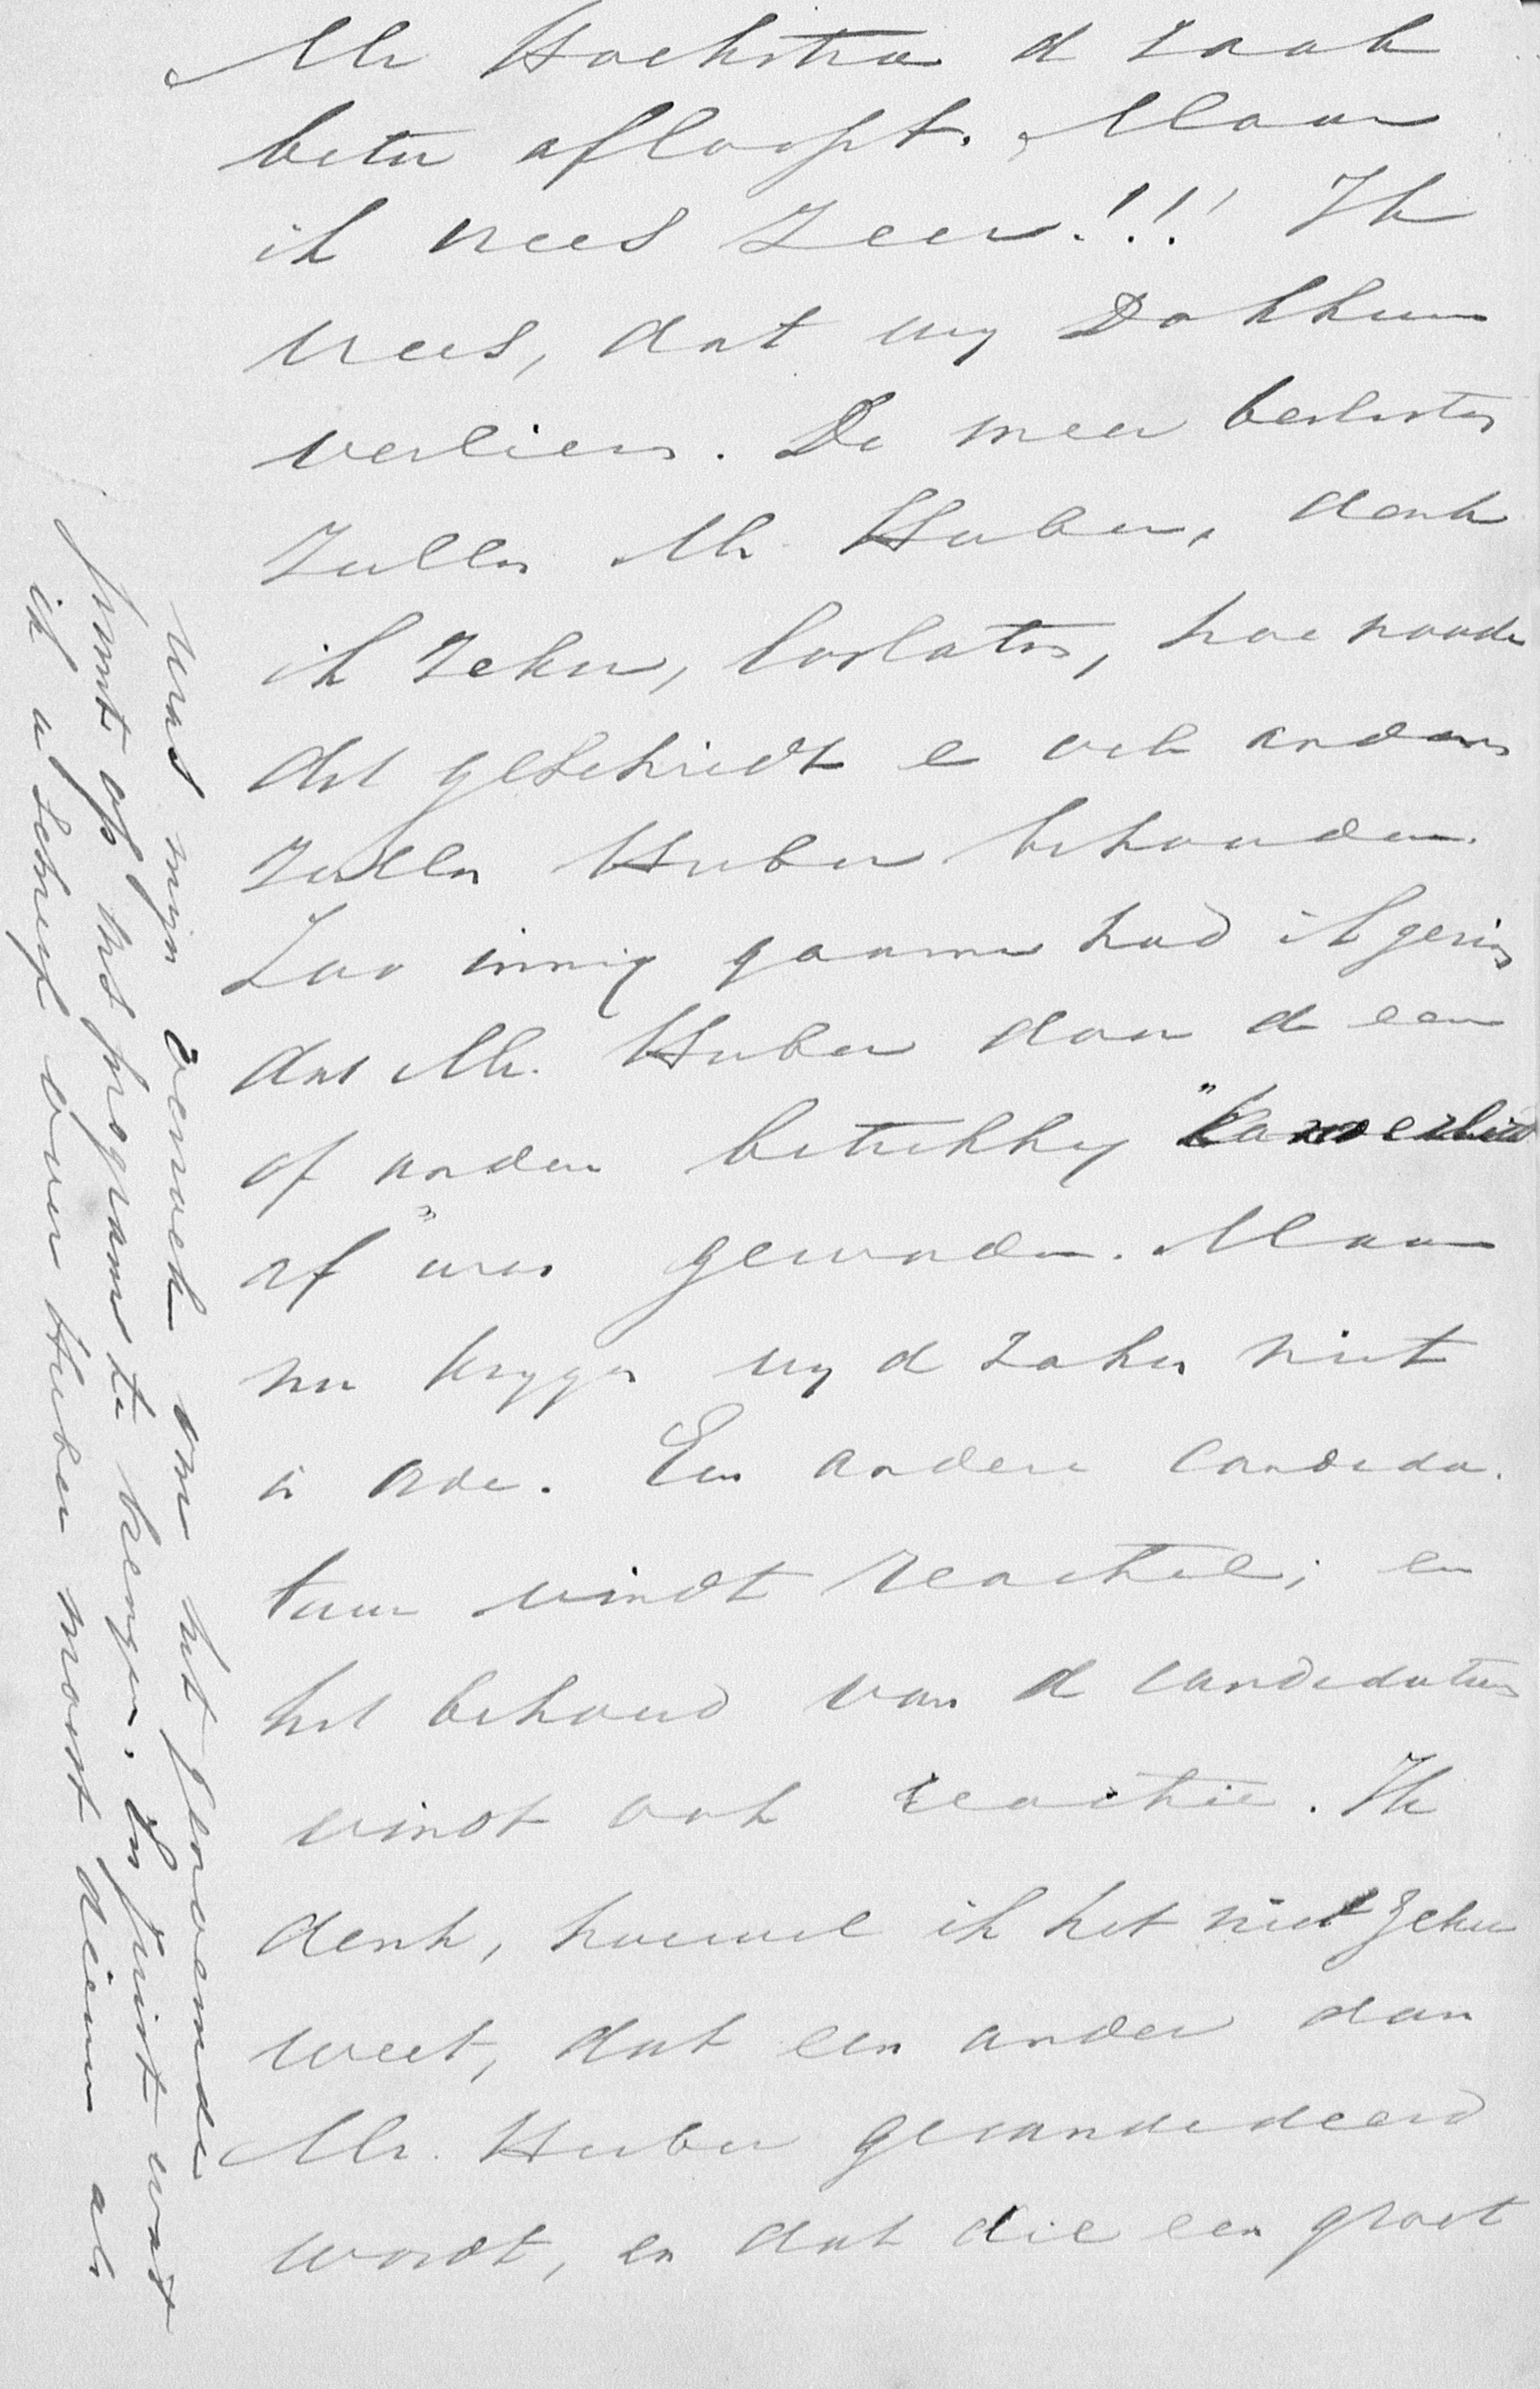 Mr Hoekstra d zaak
beter afloopt. Maar
ik vrees zeer!!! Ik
vrees, dat wy Dokkum
verliezen. De meer beslisten
zullen Mr. Huber, denk
ik zeker, loslaten, hoe noode
dat geschiedt e vele anderen
zullen Huber behouden.
Zoo innig gaarne had ik gezien
dat Mr. Huber door de een
of andere betrekking "
af" was geworden. Maar
nu krygen wy d zaken niet
in orde. Een andere candida-
tuur vindt reactie; en
het behoud van d candidatuur
vindt ook reactie. Ik
denk, hoewel ik het niet zeker
weet, dat een ander dan
Mr. Huber gecandideerd
wordt, en dat die een groot
was mijn verzoek om het genoemde
punt op het program te brengen. En juist wat
ik u schreef over Huber moest dienen als